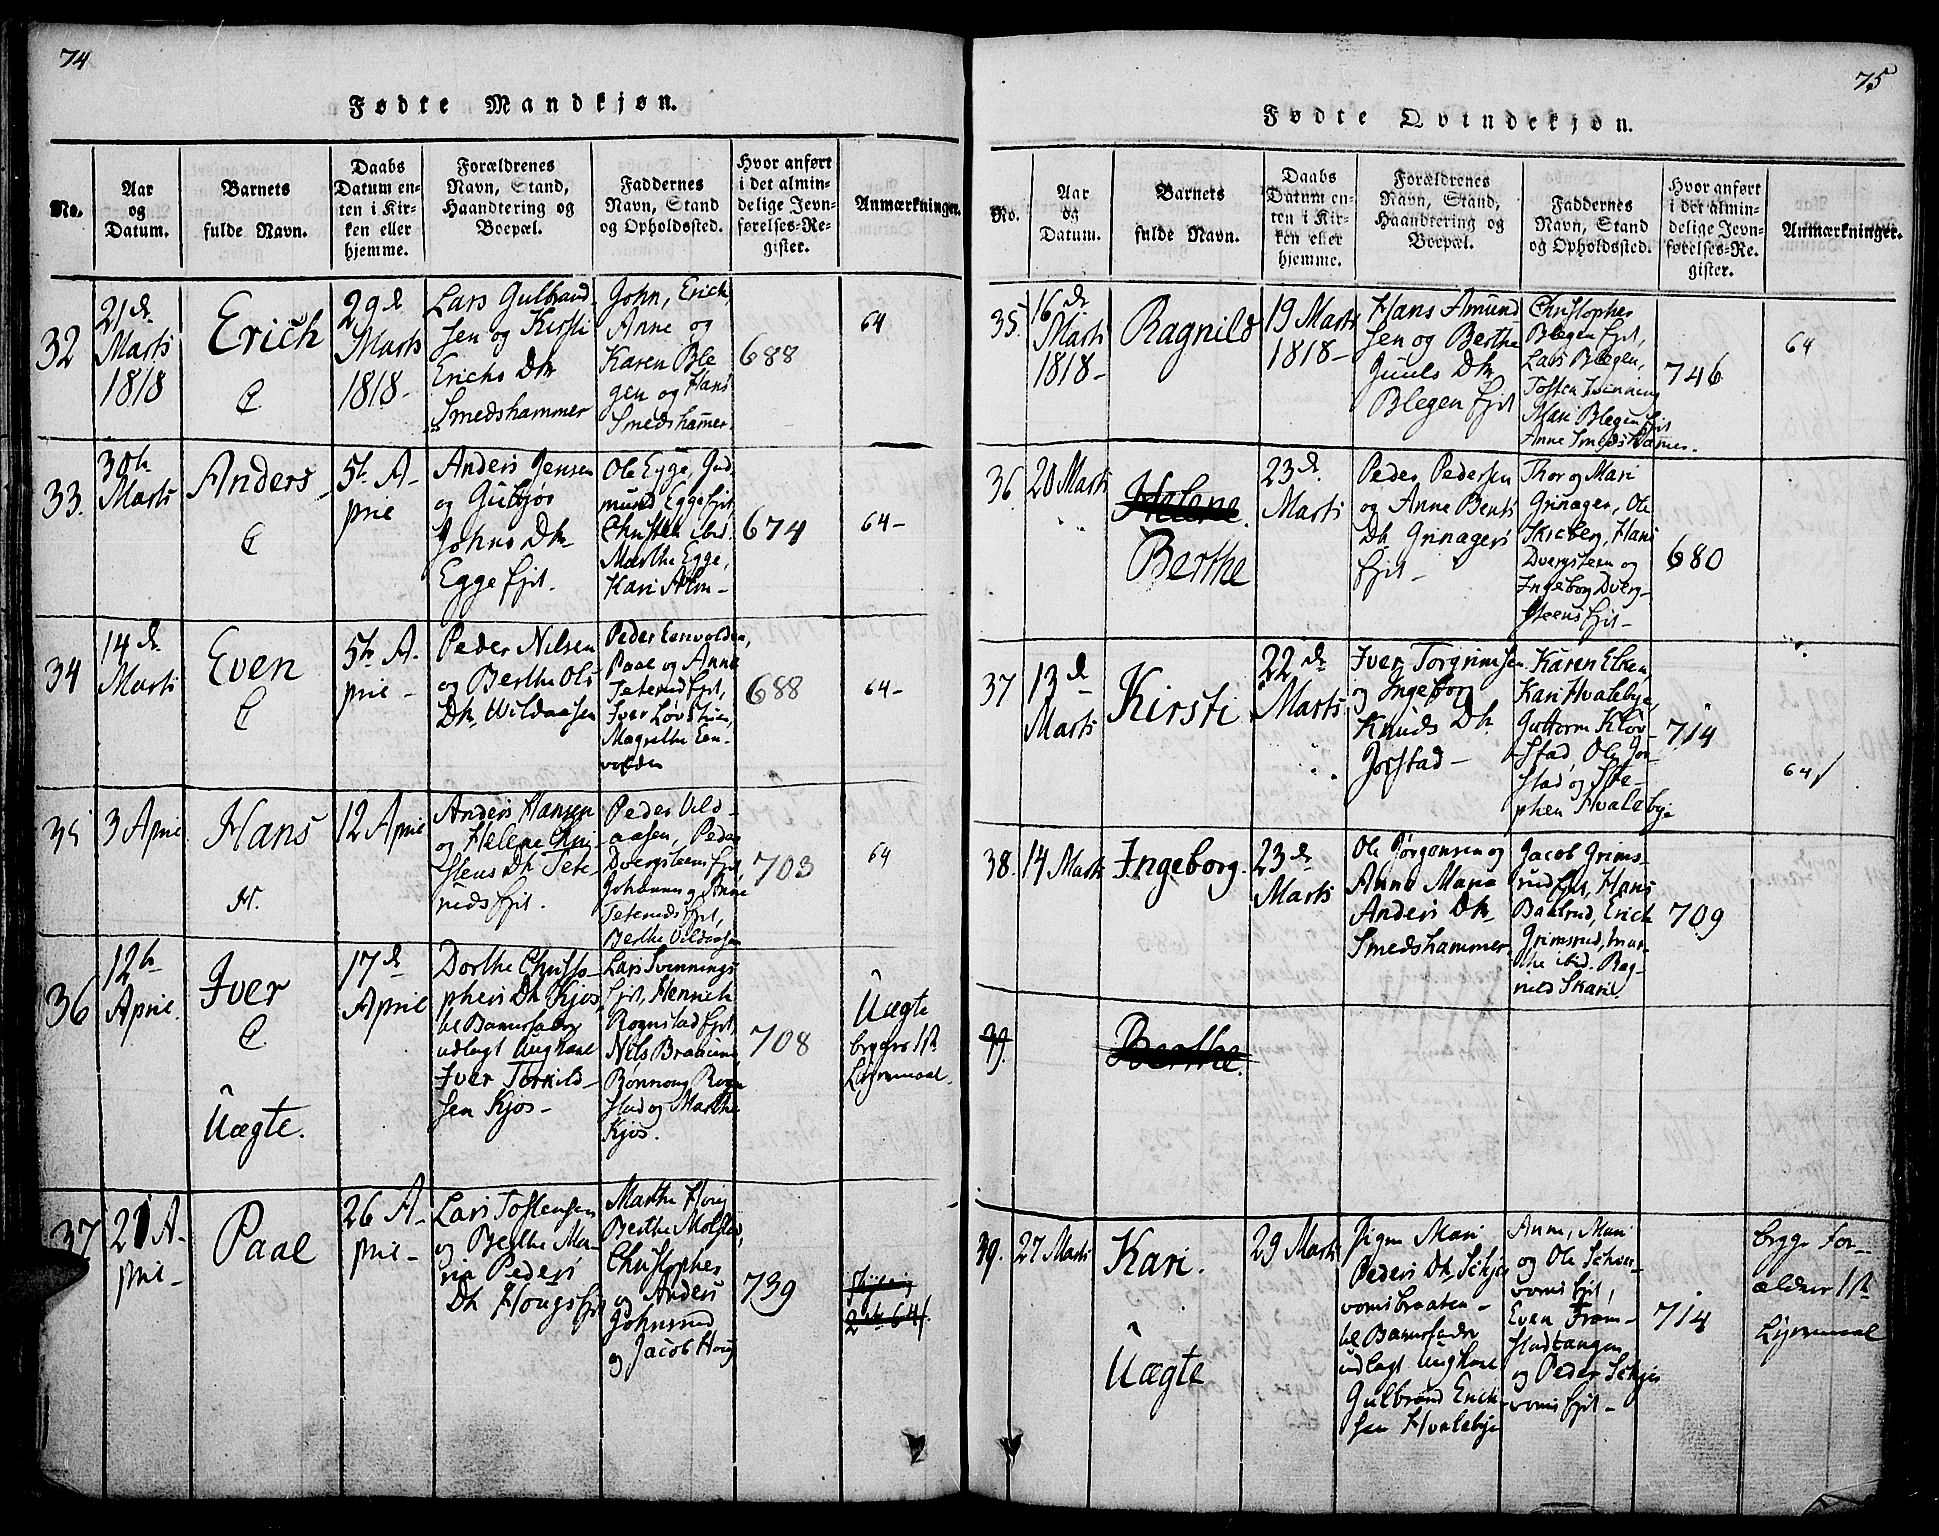 74
Fødte Mandkjøn.
No.
Aar
og
Datum.
Barnets
fulde Navn.
Daabs
Datum en-
ten i Kir-
ken eller
hjemme.
Forældrenes
Navn, Stand,
Haandtering og
Boepæl.
Faddernes
Navn, Stand
og Opholdssted.
Hvor anført
i det almin-
delige Jevn-
førelses-Re-
gister.
Anmærkninger.
32
21de
Marts
1818
Erich
E
29d
Marts
1818-
Lars Gulbrand-
sen og Kirsti
Erichs Dtr
Smedshammer
John, Erich,
Anne og
Karen Ble
gen og Hans
Smedshamer.
688
64
33.
30th
Marts
Anders
E
5th A-
pril
Anders Jensen
og Gubjør
Johns Dtr
Egge Ejet.
Ole Egge, Gud
mund Egge Ejet
Christen ibid.
Marthe Egge,
Kari Alm-
674
64-
34
14de
Marts
Even
E
5th A-
pril-
Peder Nilsen
og Berthe Ols
Dtr. Wildaasen
Peder Eenvolden,
Paal og Anne
Teterud Ejet,
Iver Løvstuen,
Magrethe Een-
volden
688
64-
35
3 April
Hans
12 April
Anders Hansen
og Helene Chri-
stens Dtr Tete-
ruds Ejet.
Peder Vild-
aasen, Peder
Dvergsteens Ejet
Johannes
Teteruds Ejet,
Berthe Vildaasen
703
64
36
12th
April.
Iver
E
Uægte.
17d
April
Dorthe Christo-
phers Dtr Kjos,
til Barnefader
udlagt Ungkarl
Iver Torkild-
sen Kjos-
Lars Svennings
Ejet, Henrich
Rognstad Ejet,
Nils
Rønnoug Rogn
stad og Marthe
Kjos.
708
Uægte
begges 1ste
Lejermaal.
37
21 A-
pril-
Paal
26 A-
pril-
Lars Tostensen
og Berthe Ma-
ria Peders
Dtr Hougs Ejet
Marthe Houg
Berthe Molstad,
Christopher
og Anders
Johnsrud
og Jacob Houg
739
75
Fødte Qvindekjøn.
No.
Aar
og
Datum.
Barnets
fulde Navn.
Daabs
Datum en-
ten i Kir-
ken eller
hjemme.
Forældrenes
Navn, Stand,
Haandtering og
Boepæl.
Faddernes
Navn, Stand
og Opholdssted.
Hvor anført
i det almin-
delige Jevn-
førelses-Re-
gister.
Anmærkninger.
35.
16de
Marts
1818-
Ragnild
19 Marts
1818-
Hans Amund
sen og Berthe
Juuls Dtr
Blegen Ejet
Christopher
Blegen Ejet,
Lars Blegen,
Tosten
Mari Blegen Ejet
Anne Smedshamer.
746
64
36
20 Marts
Helene.
Berthe
23d
Marts
Peder Pedersen
og Anne Bents
Dtr Grinagers
Ejet-
Thor og Mari
Grinager, Ole
Hans
Dvergsteen og
Ingeborg Dverg-
steens Ejet-
680
37
13d
Marts
Kirsti
22de
Marts
Iver Torgrimsen
og Ingeborg
Knuds Dtr
Jorstad-
Karen Elken
Kari Hvalebye,
Guttorm Klæv-
stad, Ole Jor-
stad og Ste-
phen Hvalebye
714
64
38.
14 Marts
Ingeborg.
23d
Marts
Ole Jørgensen og
Anne Maria
Anders Dtr
Smedshammer
Jacob Grims-
rud Ejet, Hans
Bakkrud, Erich
Grimsrud, Mar-
the ibid. Rag-
nild Skarie
709
39.
Berthe.
39.
27 Marts
Kari.
Uægte
29 Marts
Pigen Mari
Peders Dtr Schjer
vomsbraaten-
til Barnefader
udlagt Ungkarl
Gulbrand Erich-
sen Hvalebye
Anne, Mari
og Ole Schier-
voms Ejet,
Even Fram-
stadtangen
og Peder Schjer
voms Ejet-
714
begge For-
ældres 1ste
Lejermaal